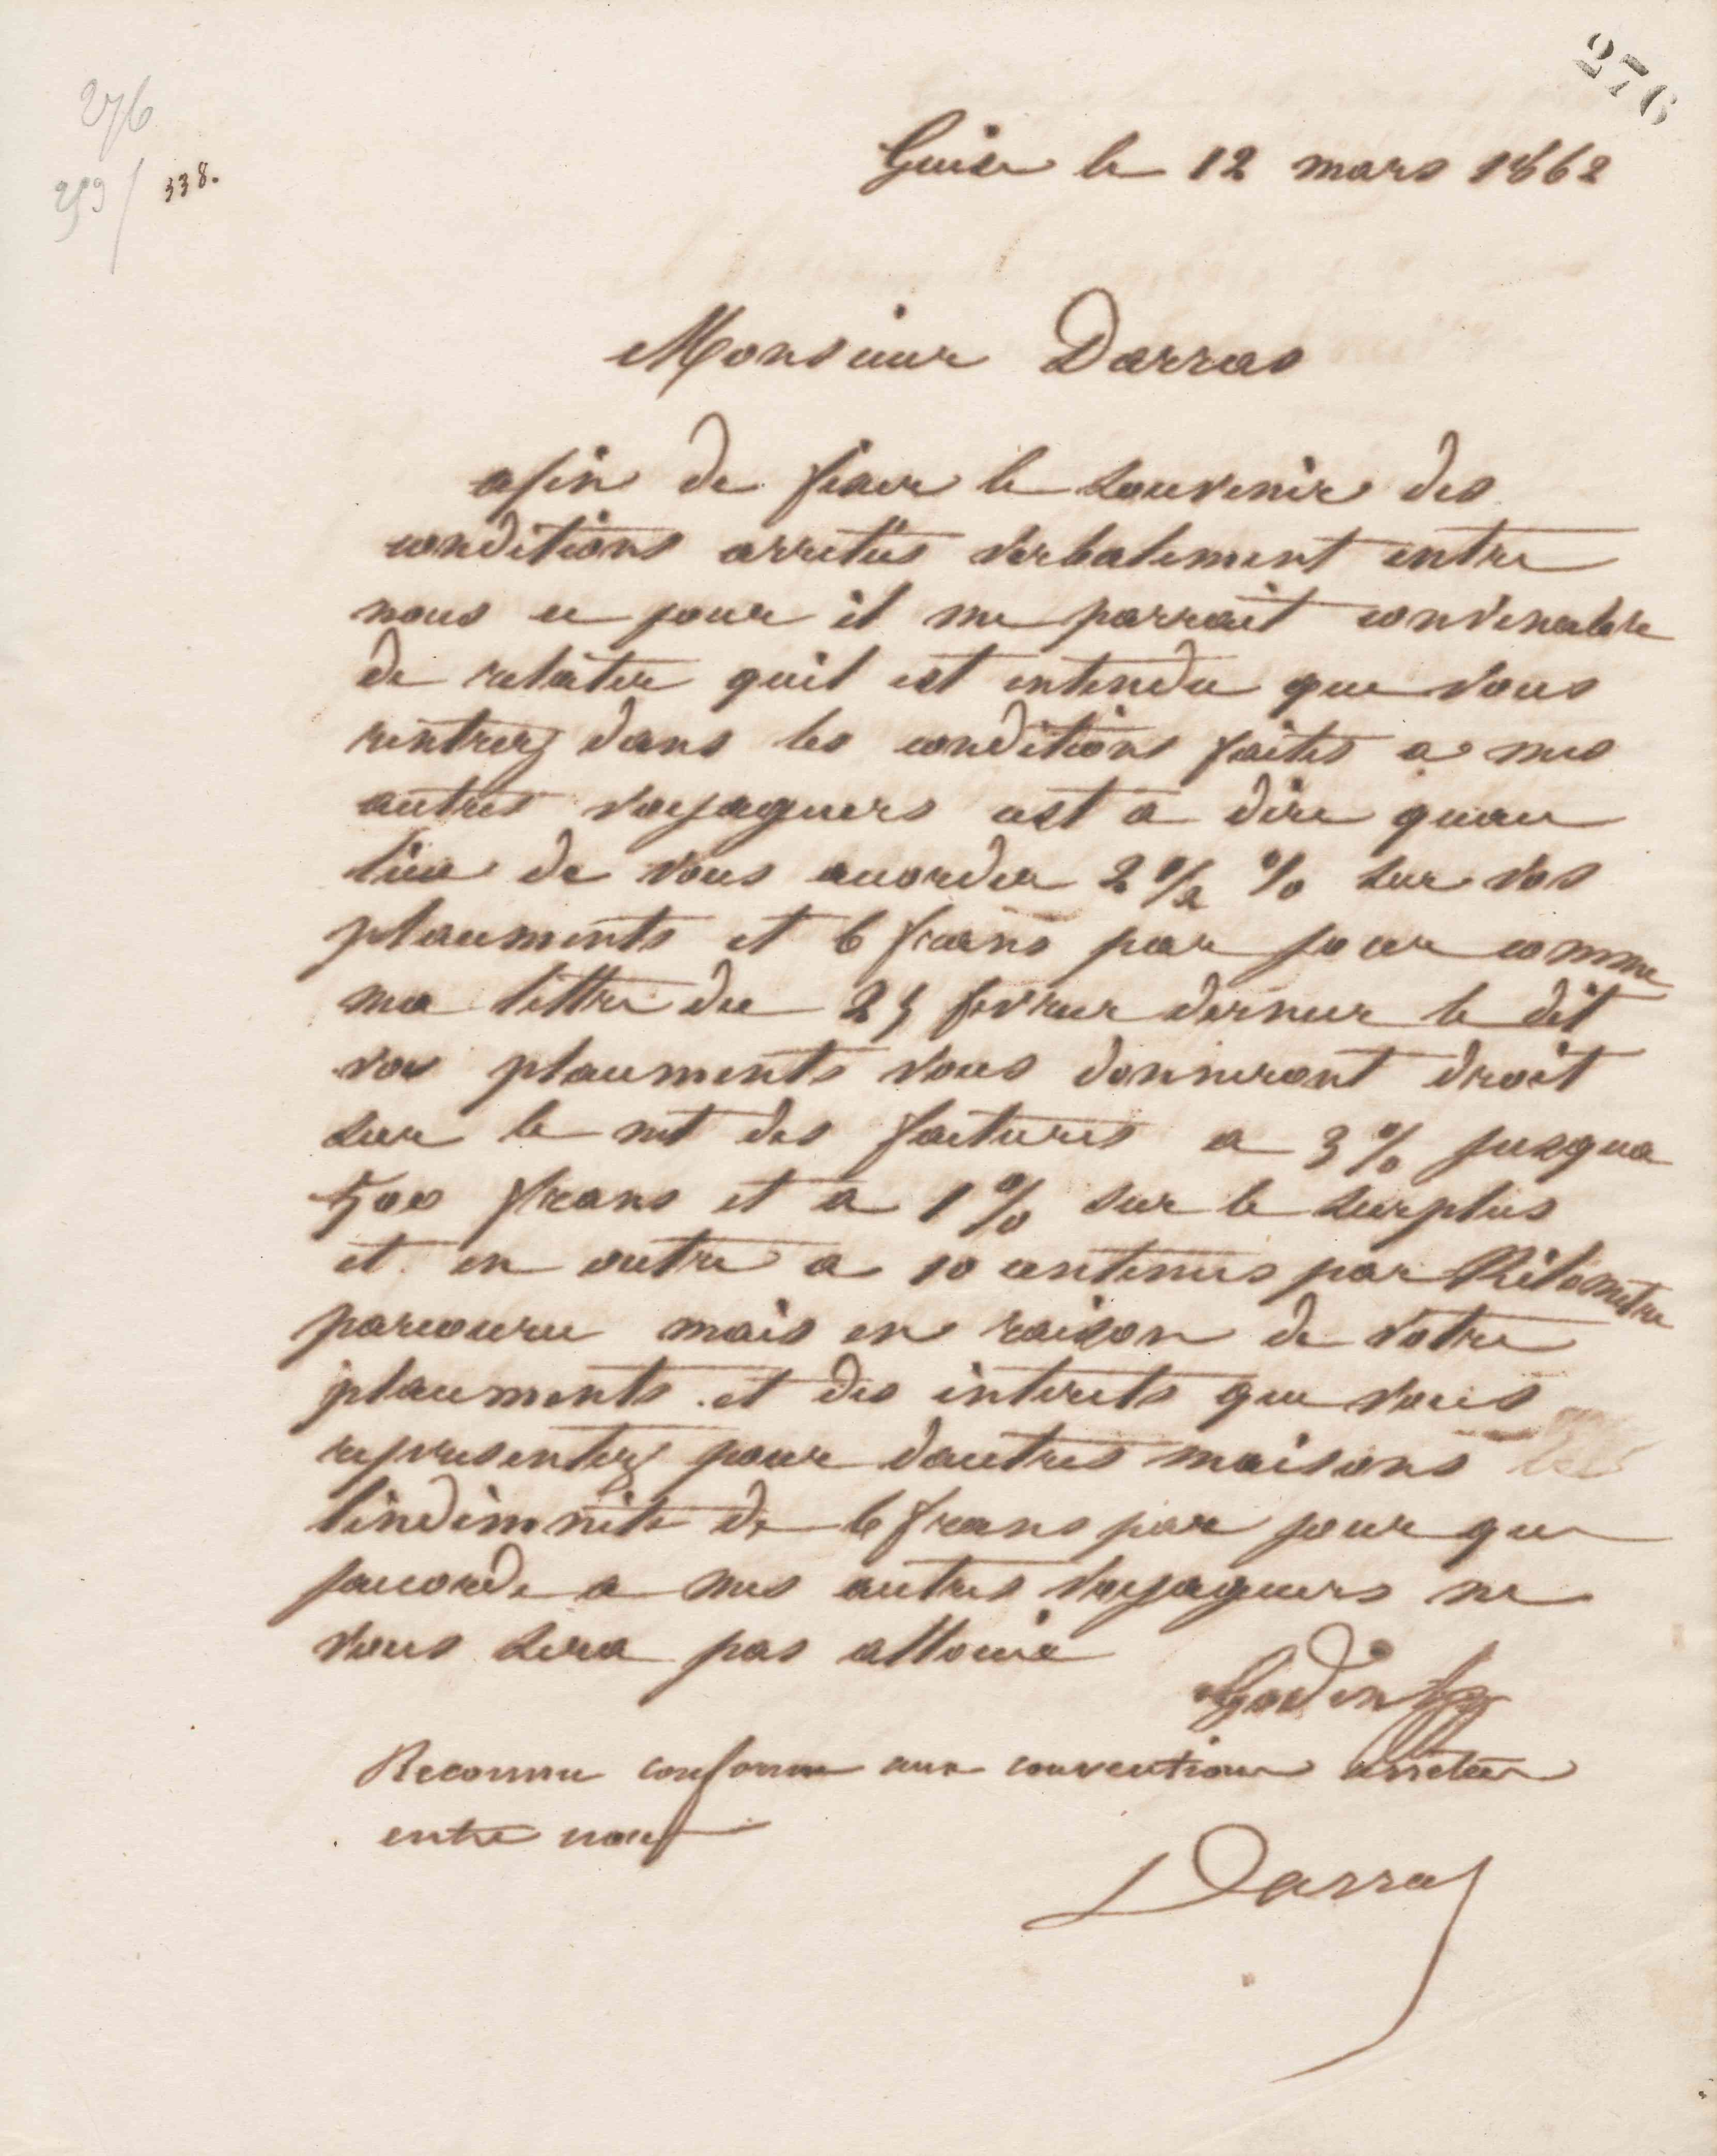 276
276
259/ 338.
Guise le 12 mars 1862
Monsieur Darras
afin de fixer le souvenir des
conditions arretées verbalement entre
nous ce jour il me parrait convenable
de relater quil est entendu que vous
rentrez dans les conditions faites a mes
autres voyageurs cest a dire quau
lieu de vous accorder 2 % sur vos
placements et 6 francs par jour comme
ma lettre du fevrier dernier le dit
vos placements vous donneront droit
sur le net des factures a 3 % jusqua
500 francs et a 1 % sur le surplus
et en outre a 10 centimes par Kilometre
parcouru mais en raison de votre
placements et des interets que vous
representez pour dautres maisons
lindemnité de 6 francs par jour que
jaccorde a mes autres voyageurs ne
vous sera pas allouée
Godin
Reconnu conforme aux conventions arrêtées
entre nous
Darras